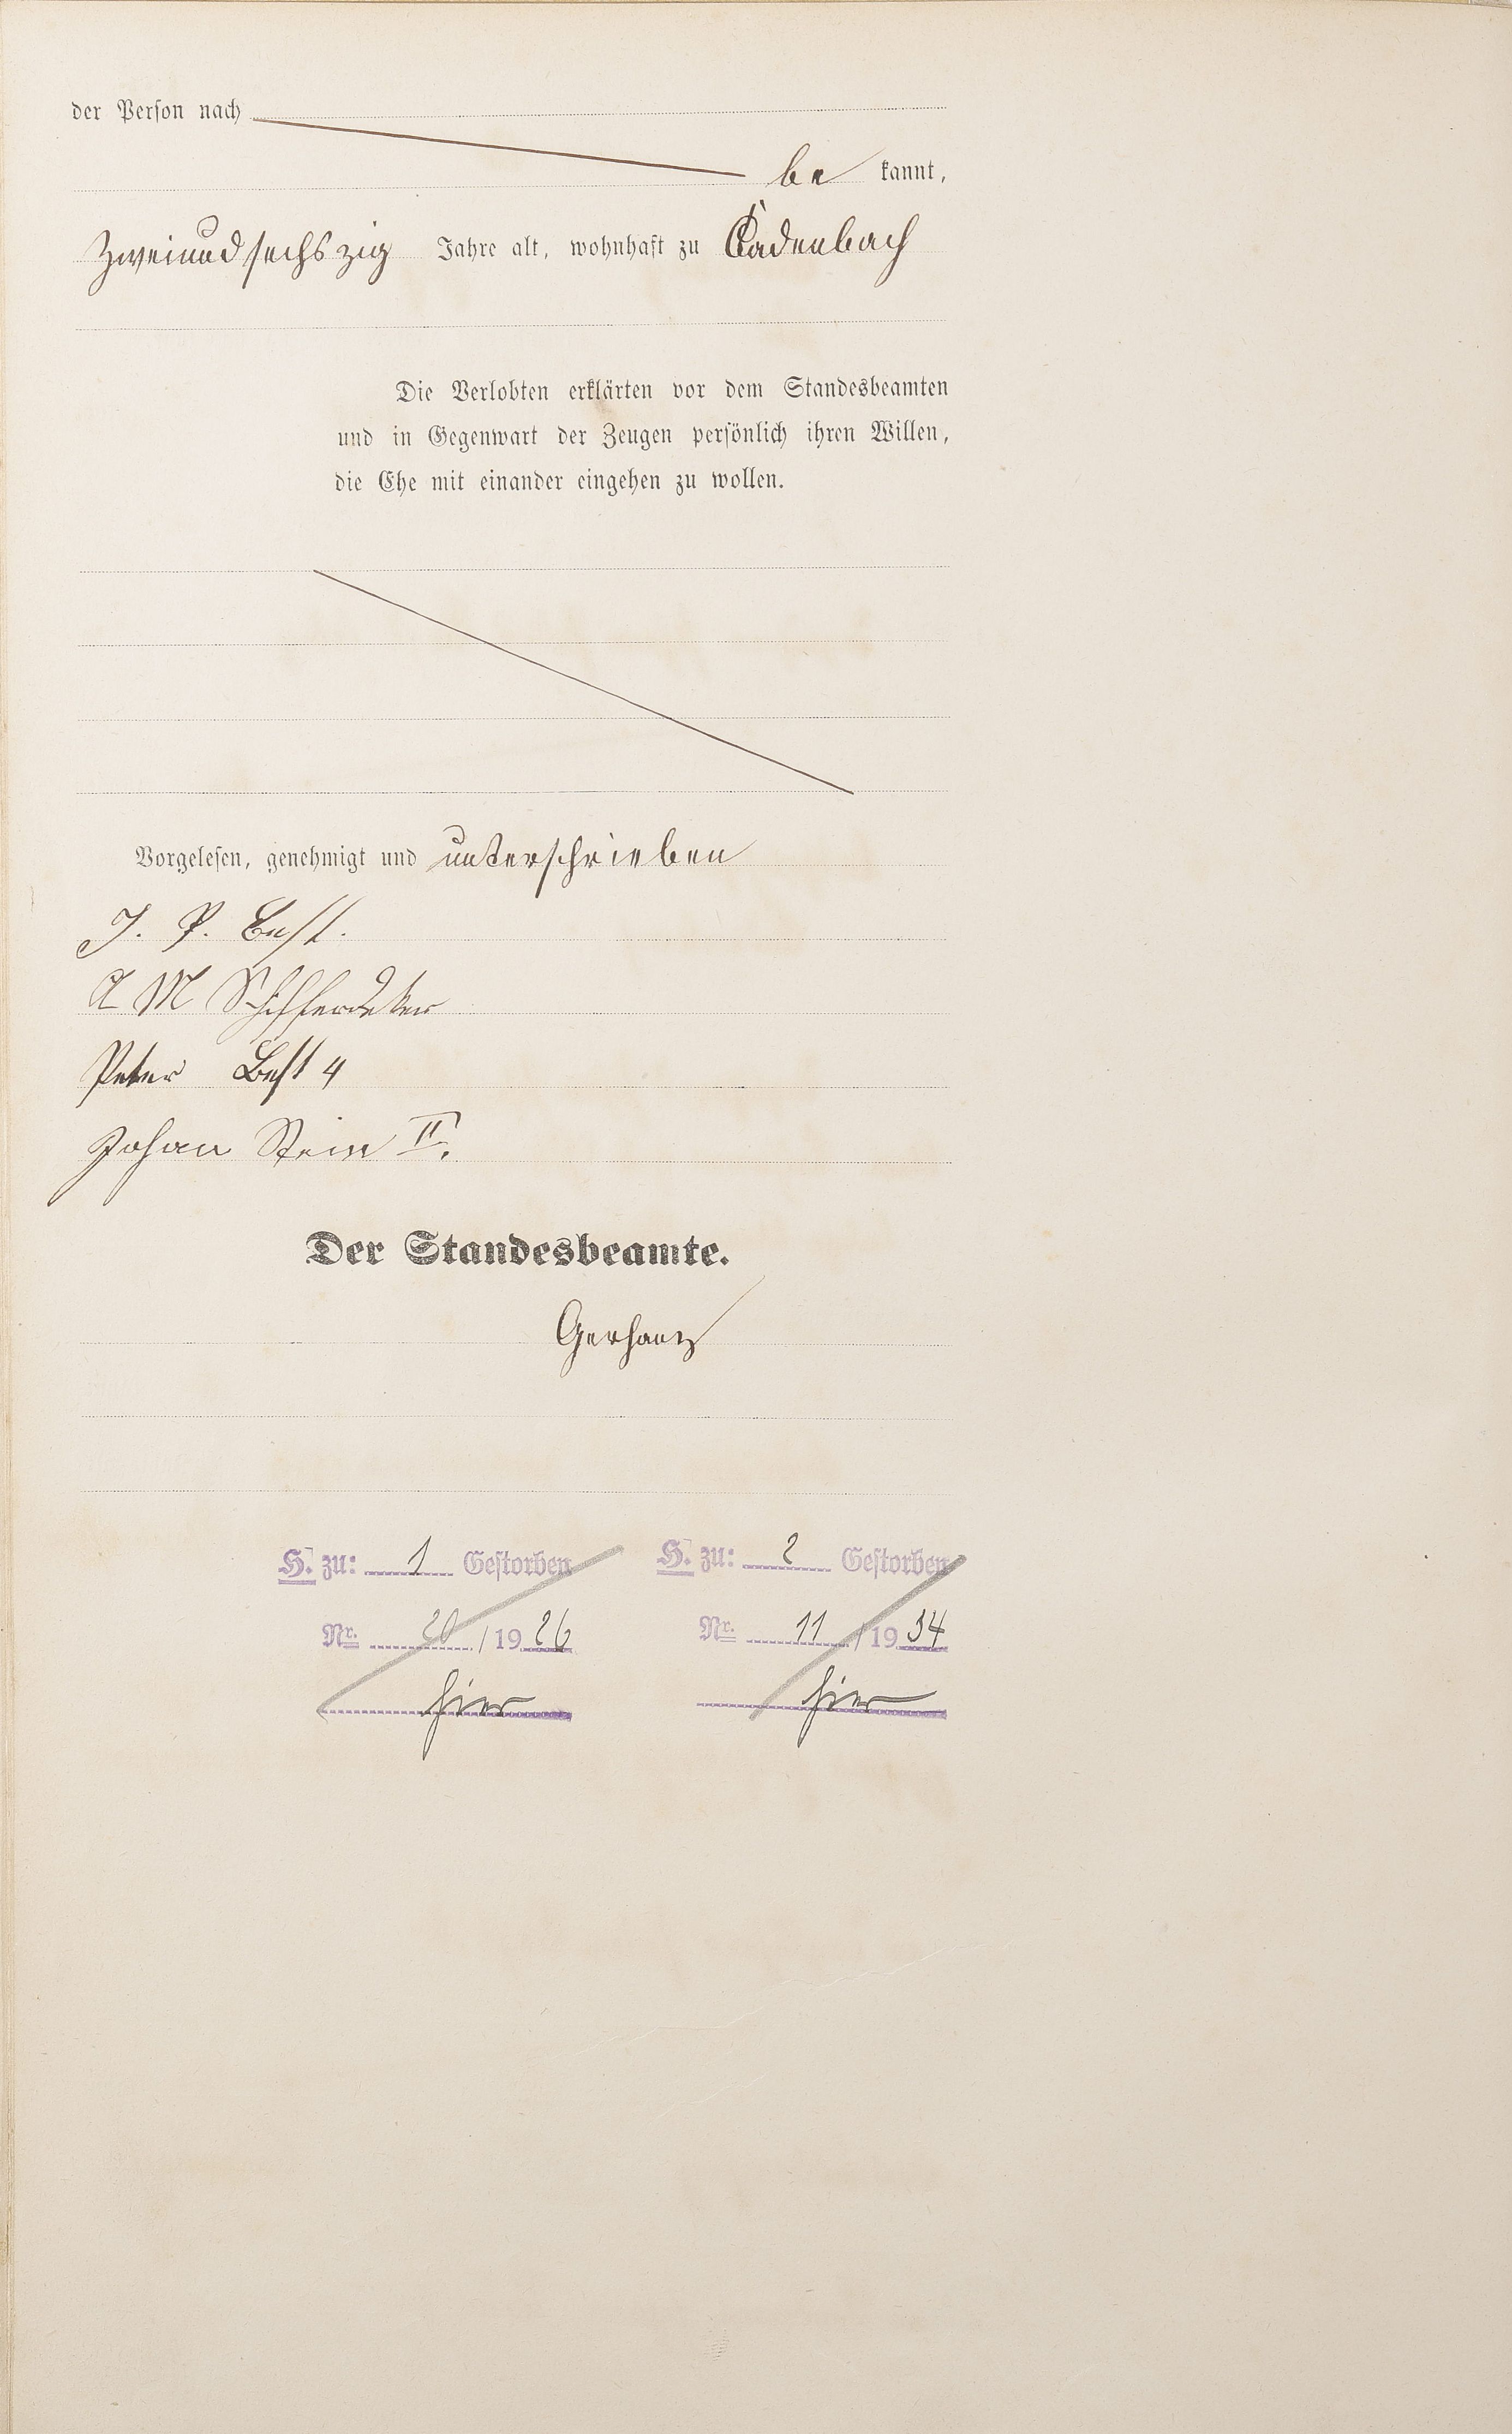 der Person nach
be kannt,
Zweiundsechszig Jahre alt, wohnhaft zu Cadenbach
Die Verlobten erklärten vor dem Standesbeamten
und in Gegenwart der Zeugen persönlich ihren Willen,
die Ehe mit einander eingehen zu wollen.
Vorgelesen, genehmigt und unterschrieben
J. P. Best.
A M Schifferdeker
Peter Best 4
Johan Stein II.
Der Standesbeamte.
Gerhartz
H. zu: 1 Gestorben
Nr. 20 / 1926
hier
H. zu: 2 Gestorben
Nr. 11 / 1934
hier